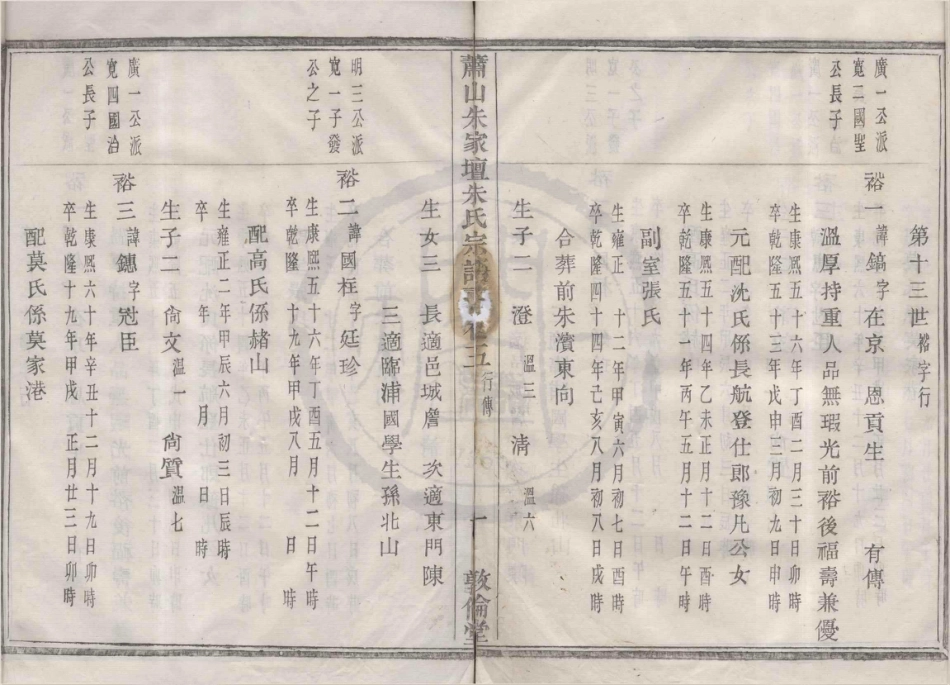 第十三世裕字行
廣一公派
寬二國聖
公長子
裕一諱鎬字在京 恩貢生 有傳
溫厚持重人品無瑕光前裕後福壽兼優
生康熙五十六年丁酉二月三十日卯時
卒乾隆五十三年戊申三月初九日申時
元配沈氏係長航登仕郎豫凡公女
生康熙五十四年乙未正月十二日酉時
卒乾隆五十一年丙午五月十二日午時
副室張氏
生雍正 十二年甲寅六月初七日酉時
卒乾隆四十四年己亥八月初八日戌時
合葬前朱濆東向
生子二 澄溫三 清溫六
蕭山朱家壇朱氏宗譜 卷五 行傳 一 敦倫堂
生女三 長適邑城詹 次適東門陳
三適臨浦國學生孫北山
明三公派
寬一子發
公之子
裕二諱國柱字廷珍
生康熙五十六年丁酉五月十二日午時
卒乾隆 十九年甲戌八月 日 時
配高氏係赭山
生雍正二年甲辰六月初三日辰時
卒 年 月 日 時
生子二 尙文溫一 尙質溫七
廣一公派
寬四國治
公長子
裕三諱鏓字冠臣
生康熙六十年辛丑十二月十九日卯時
卒乾隆十九年甲戌 正月廿三日卯時
配莫氏係莫家港